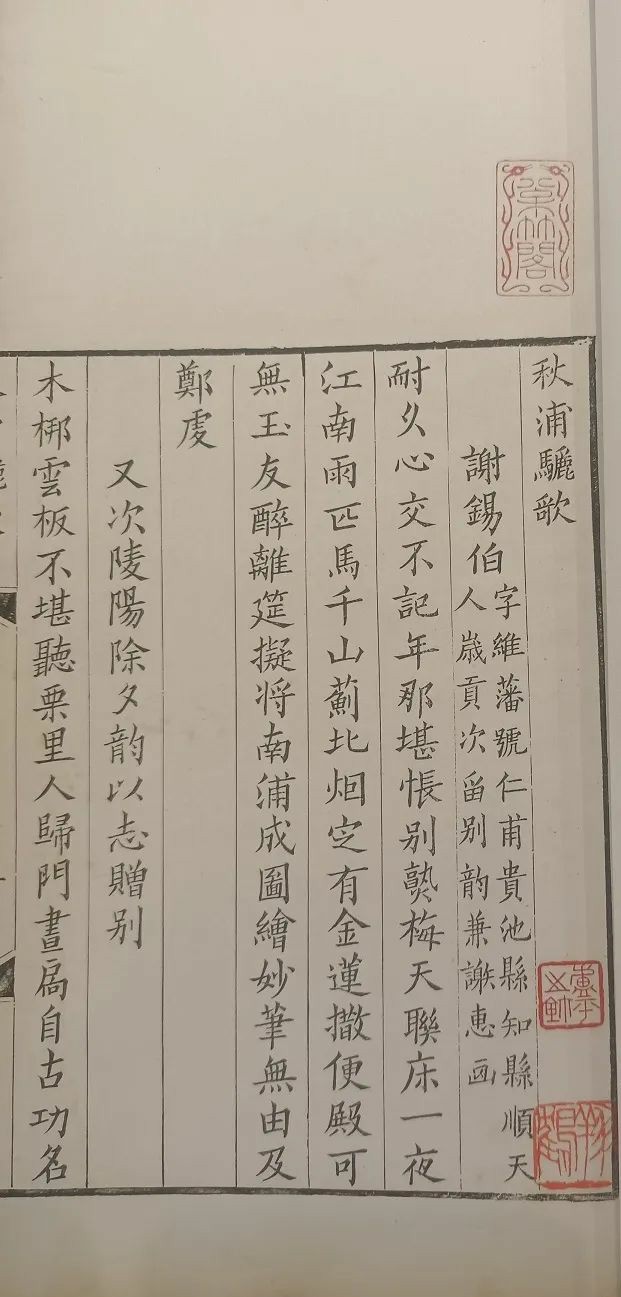 秋浦驪歌
謝錫伯字維藩號仁甫貴池縣知縣順天
人歲貢次留别韵兼謝惠画
耐久心交不記年那堪悵别𤍠梅天聯床一夜
江南雨匹馬千山薊北烟定有金蓮撤便殿可
無玉友醉離筵擬将南浦成圖繪妙筆無由及
鄭虔
又次陵陽除夕韵以志贈别
木梆雲板不堪聽栗里人歸門晝扃自古功名